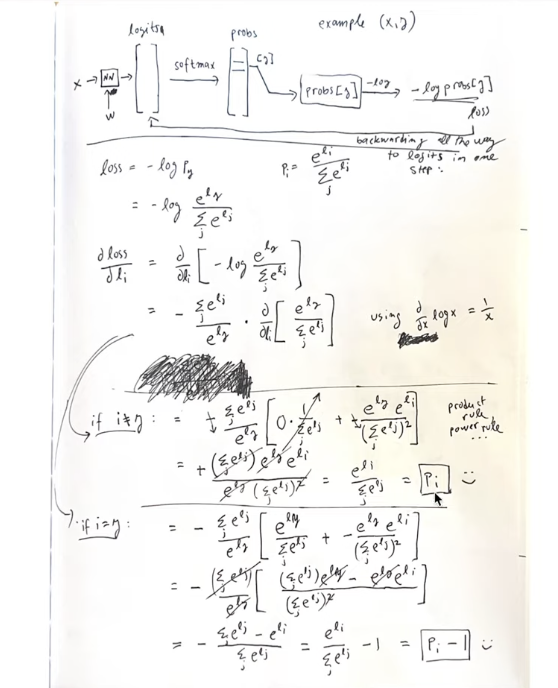 example (x,y)
logits probs
softmax [y]
x → NN → probs[y] -log → - log probs[y]
W loss
backwarding all the way
to logits in one
step:
loss = - log P_y P_i = e^{l_i} / Σ_j e^{l_j}
= - log e^{l_y} / Σ_j e^{l_j}
∂loss/∂l_i = ∂/∂l_i [ - log e^{l_y} / Σ_j e^{l_j} ]
= - Σ_j e^{l_j} / e^{l_y} · ∂/∂l_i [ e^{l_y} / Σ_j e^{l_j} ] using ∂/∂x log x = 1/x
if i≠y : = + Σ_j e^{l_j} / e^{l_y} [ 0 · 1 / Σ_j e^{l_j} + + e^{l_y} e^{l_i} / (Σ_j e^{l_j})² ] product
rule
power rule
...
= + (Σ_j e^{l_j}) e^{l_y} e^{l_i} / e^{l_y} (Σ_j e^{l_j})² = e^{l_i} / Σ_j e^{l_j} = P_i
if i=y : = - Σ_j e^{l_j} / e^{l_y} [ e^{l_y} / Σ_j e^{l_j} + - e^{l_y} e^{l_i} / (Σ_j e^{l_j})² ]
= - (Σ_j e^{l_j}) / e^{l_y} [ (Σ_j e^{l_j}) e^{l_y} - e^{l_y} e^{l_i} / (Σ_j e^{l_j})² ]
= - Σ_j e^{l_j} - e^{l_i} / Σ_j e^{l_j} = e^{l_i} / Σ_j e^{l_j} - 1 = P_i - 1